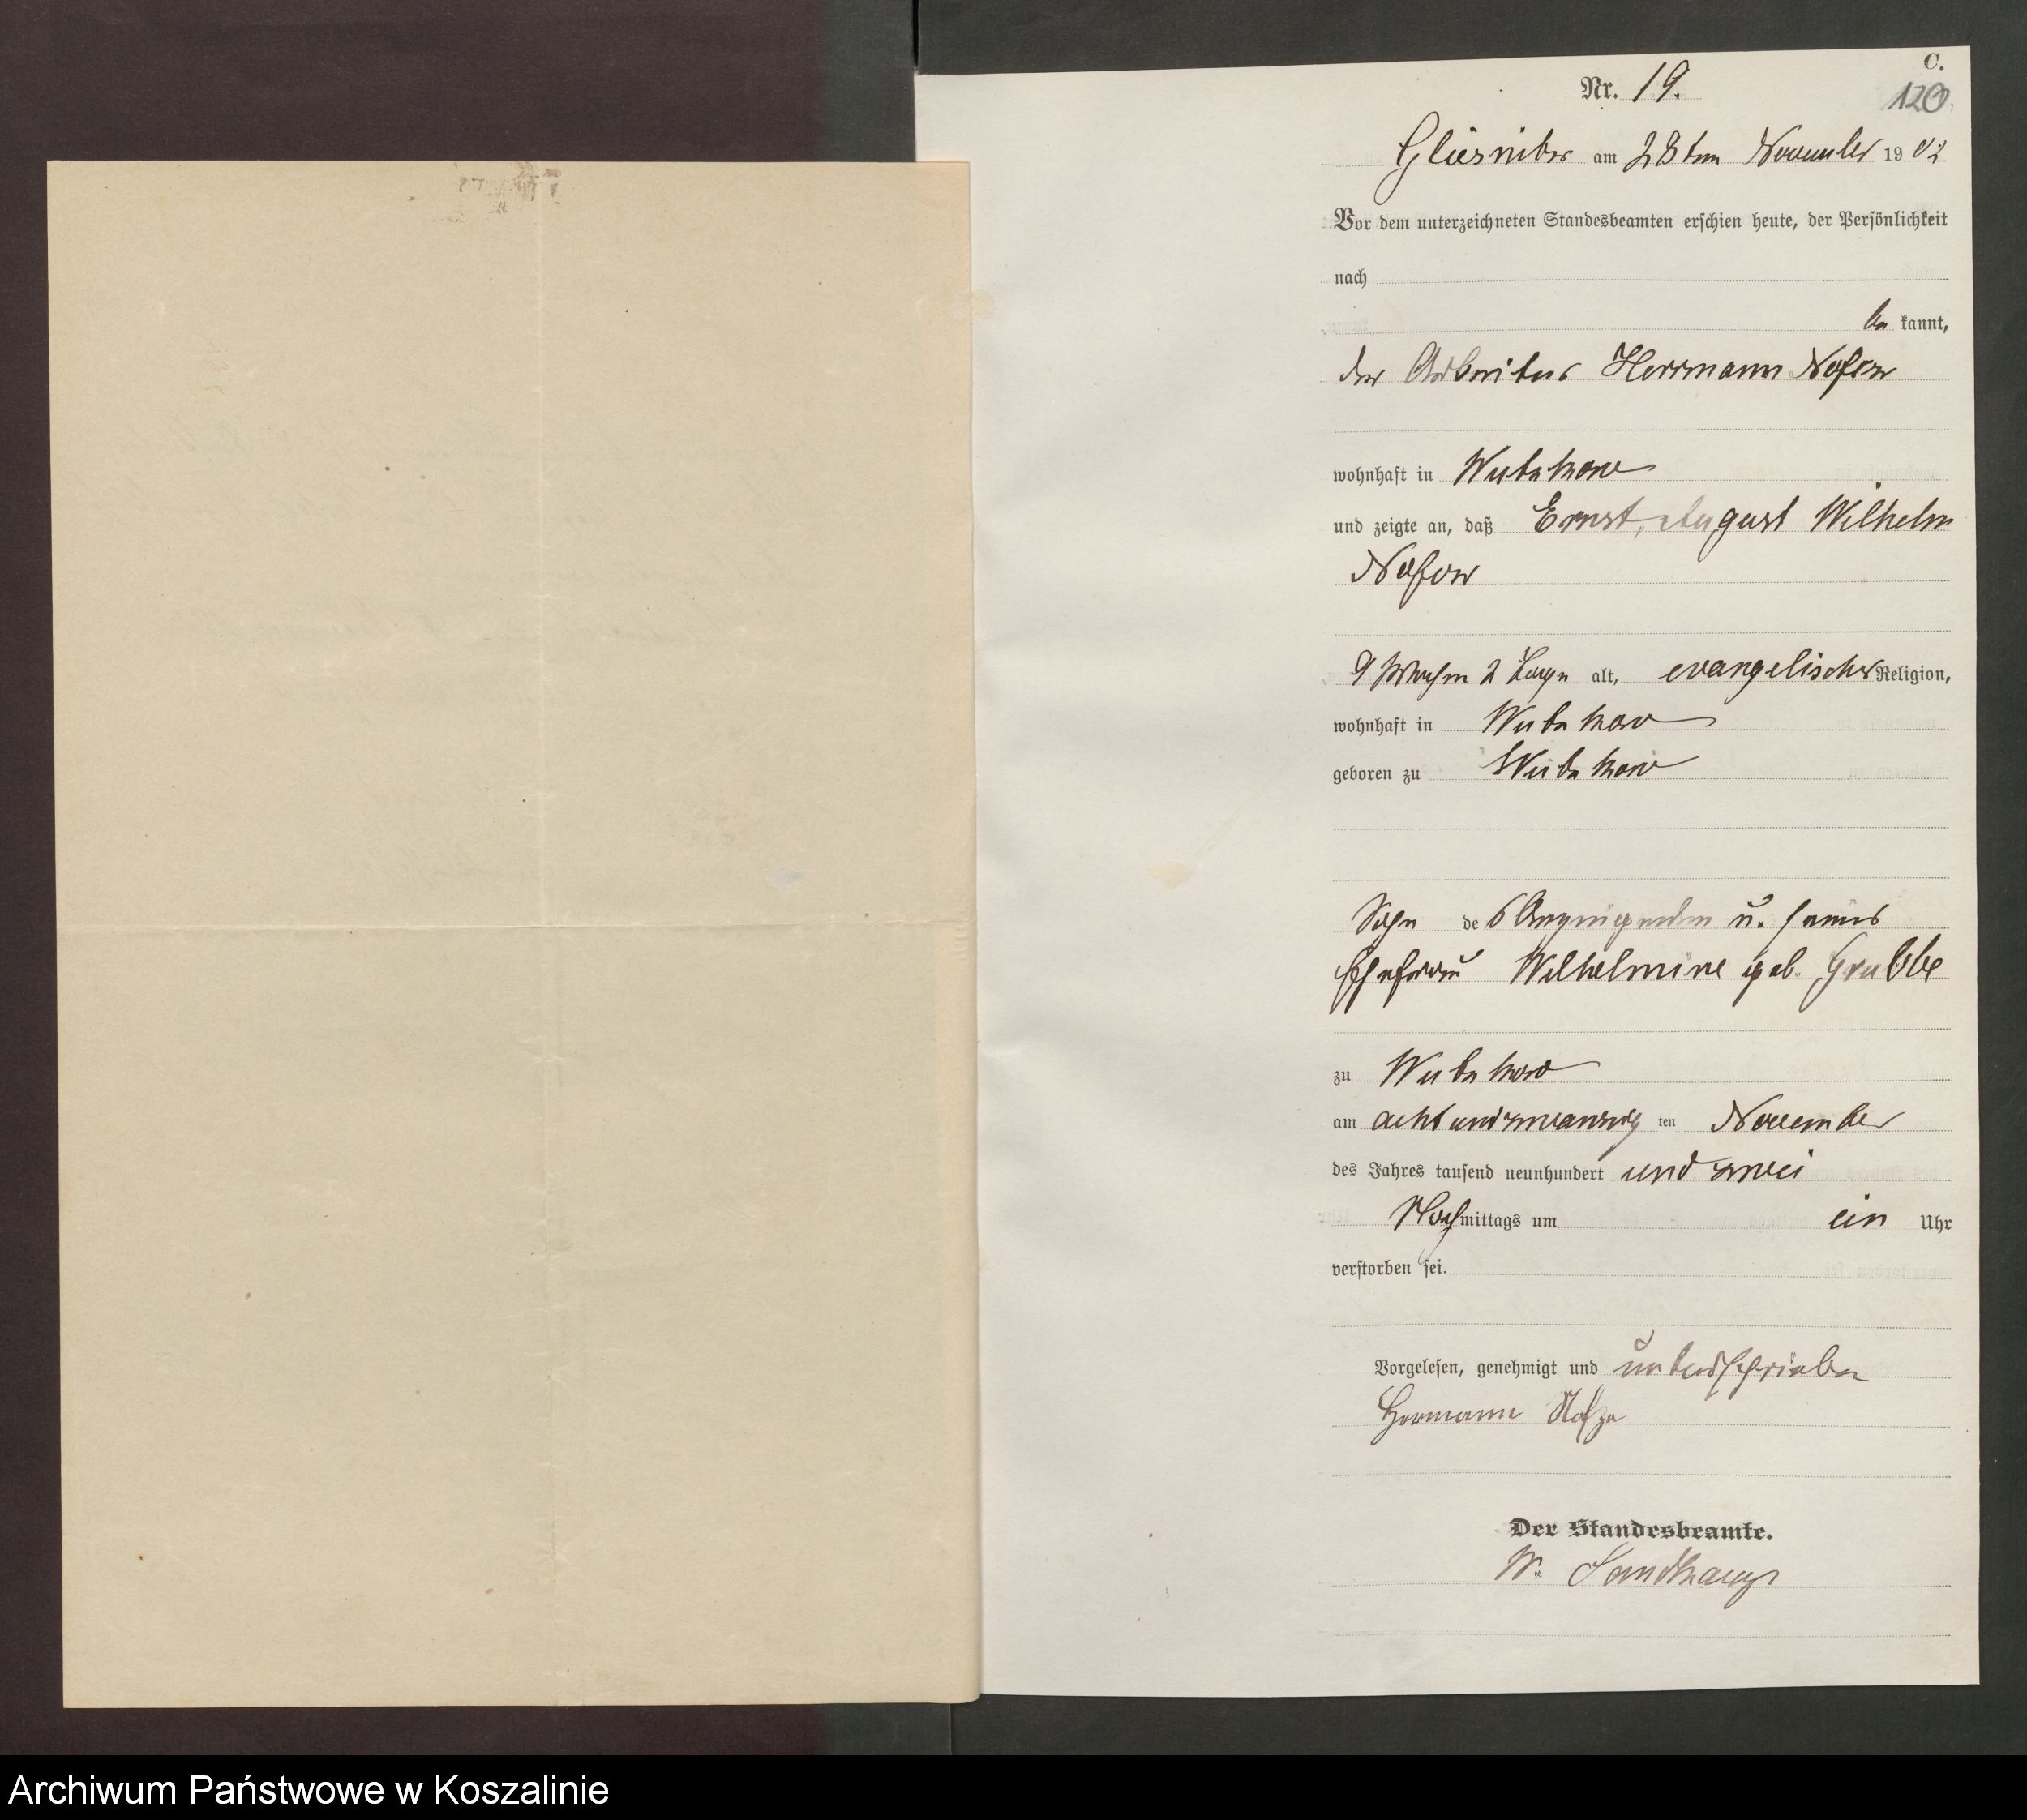 C.
Nr. 19.
120
am 28ten November 1902
Vor dem unterzeichneten Standesbeamten erschien heute, der Persönlichkeit
nach
be kannt,
der Arbeiter Herrmann
wohnhaft in
und zeigte an, daß Ernst, August Wilhelm
9 Wochen 2 Tage alt, evangelischer Religion,
wohnhaft in
geboren zu
Sohn des Anzeigenden u. seiner
Ehefrau Wilhelmine geb. Grubbe
zu
am achtundzwanzig ten November
des Jahres tausend neunhundert und zwei
Nachmittags um ein Uhr
verstorben sei.
Vorgelesen, genehmigt und unterschrieben
Hermann
Der Standesbeamte.
W. Sandkamp
Archiwum Państwowe w Koszalinie